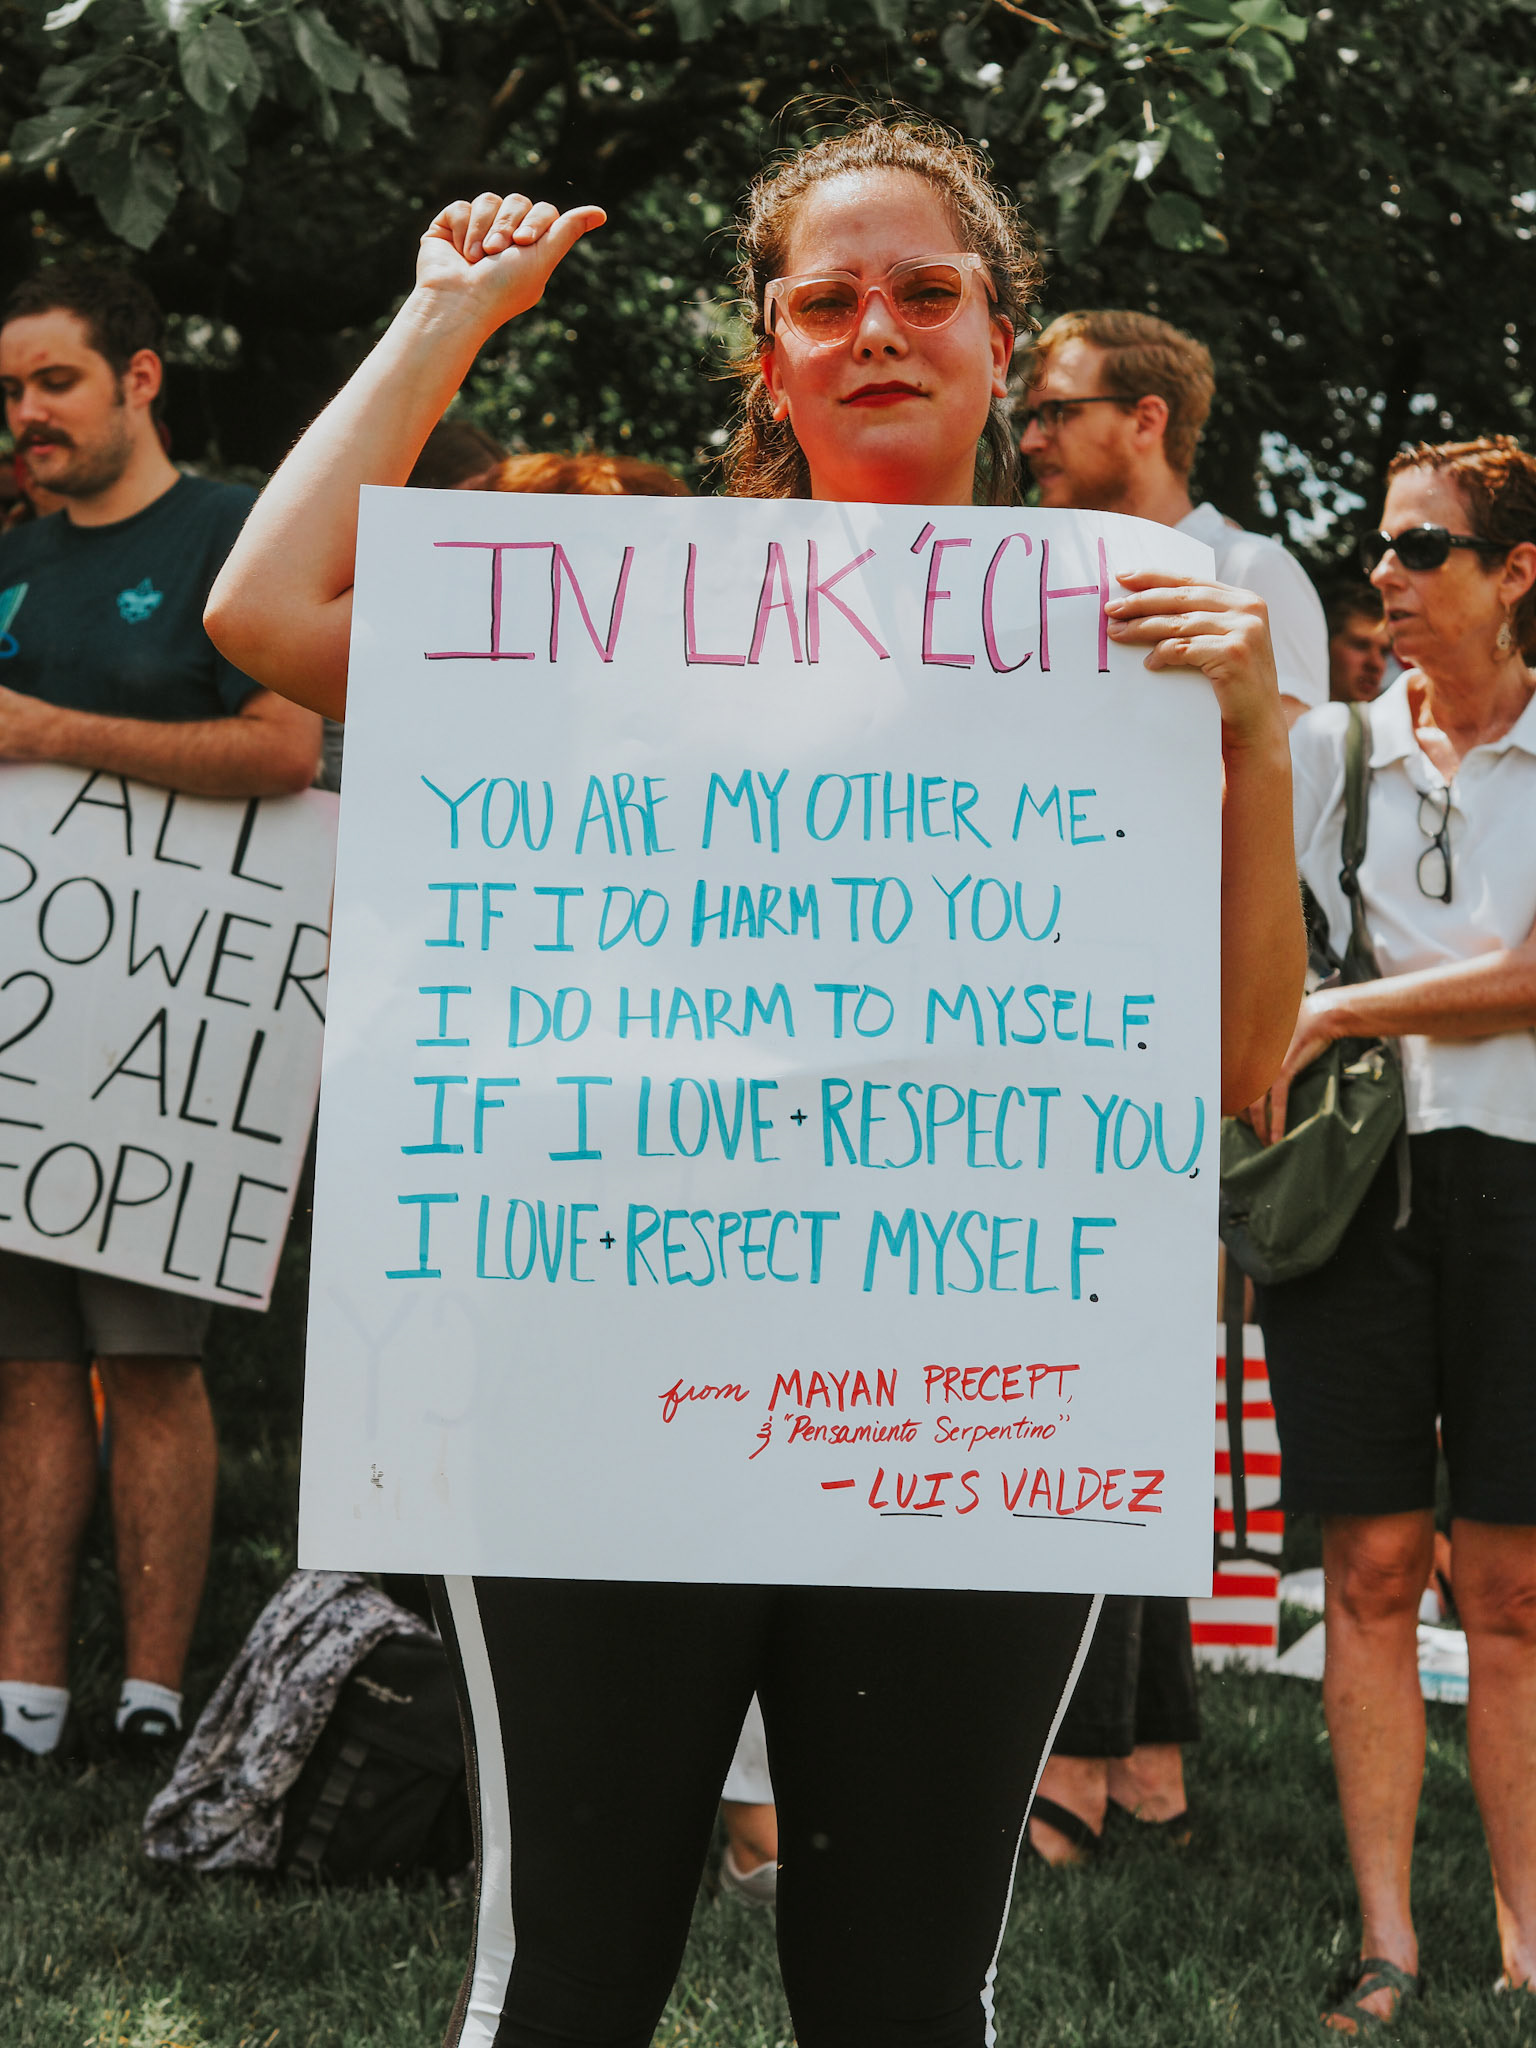 IN LAK 'ECH
YOU ARE MY OTHER ME.
IF I DO HARM TO YOU,
I DO HARM TO MYSELF.
IF I LOVE + RESPECT YOU,
I LOVE + RESPECT MYSELF.
from MAYAN PRECEPT,
& "Pensamiento Serpentino"
- LUIS VALDEZ
ALL
POWER
2 ALL
EOPLE